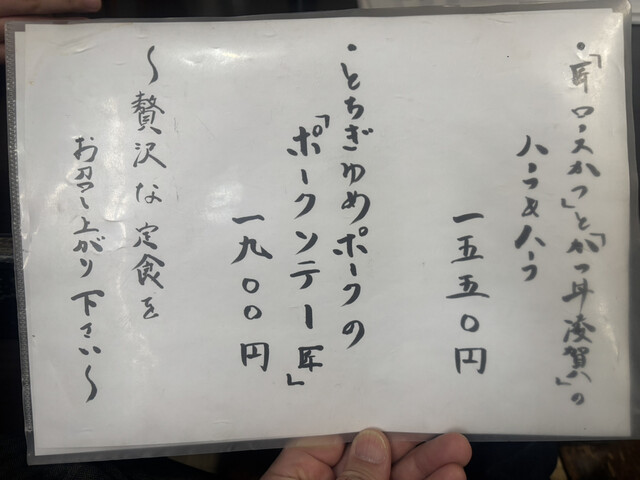 ・「匠ロースかつ」と「かつ丼凌賀」の
ハーフ&ハーフ
一五五〇円
・とちぎゆめポークの
「ポークソテー匠」
一九〇〇円
〜贅沢な定食を
お召し上がり下さい〜